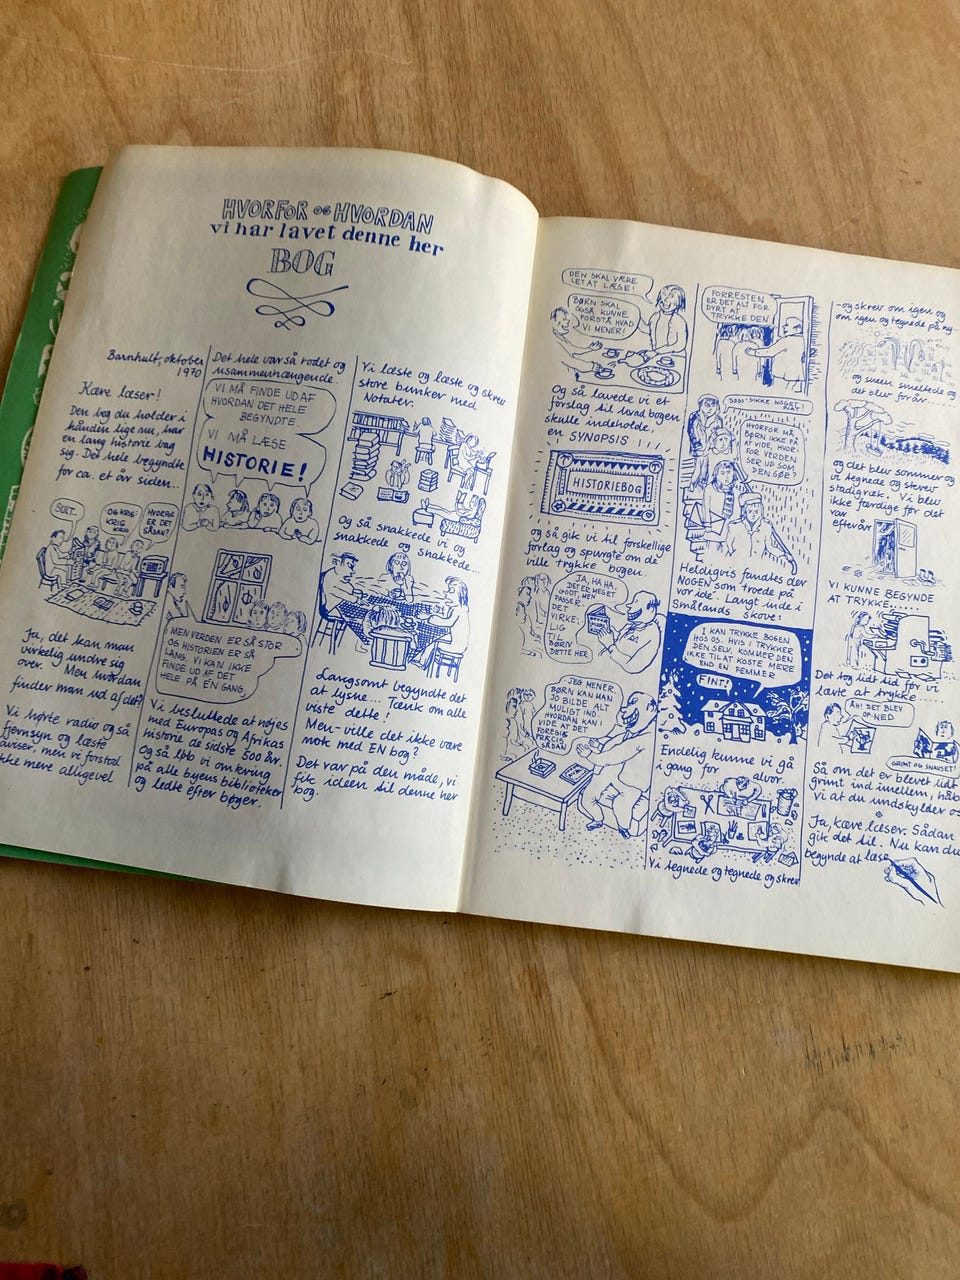 HVORFOR OG HVORDAN
vi har lavet denne her
BOG
Barnhult, oktober
1970
Kære læser!
Den bog du holder i
hånden lige nu, har
en lang historie bag
sig. Det hele begyndte
for ca. et år siden...
SULT..
OG KRIG
KRIG
KRIG
HVORFOR
ER DET
SÅDAN?
Ja, det kan man
virkelig undre sig
over. Men hvordan
finder man ud af det?
Vi hørte radio og så
fjernsyn og læste
aviser, men vi forstod
ikke mere alligevel
Det hele var så rodet og
usammenhængende.
VI MÅ FINDE UD AF
HVORDAN DET HELE
BEGYNDTE
VI MÅ LÆSE
HISTORIE!
MEN VERDEN ER SÅ STOR
OG HISTORIEN ER SÅ
LANG. VI KAN IKKE
FINDE UD AF DET
HELE PÅ EN GANG.
Vi besluttede at nøjes
med Europas og Afrikas
historie de sidste 500 år.
Og så løb vi omkring
på alle byens biblioteker
og ledte efter bøger.
Vi læste og læste og skrev
store bunker med
Notater.
Og så snakkede vi og
snakkede og snakkede...
Langsomt begyndte det
at lysne... Tænk om alle
vidste dette!
Men-ville det ikke være
mok med EN bog?
Det var på den måde, vi
fik ideen til denne her
bog.
DEN SKAL VÆRE
LET AT LÆSE!
BØRN SKAL
OGSÅ KUNNE
FORSTÅ HVAD
VI MENER!
Og så lavede vi et
forslag til hvad bogen
skulle indeholde.
en SYNOPSIS
HISTORIEBOG
og så gik vi til forskellige
forlag og spurgte om de
ville trykke bogen.
JA, HA HA,
DET ER MEGET
GODT, MEN
PASSER
DET
VIRKE-
LIG
TIL
BØRN
DETTE HER
JEG MENER
BØRN KAN MAN
JO BILDE ALT
MULIGT IND.
HVORDAN KAN I
VIDE AT DET
FOREGIK
PRÆCIS
SÅDAN
FORRESTEN
ER DET ALT FOR
DYRT AT
TRYKKE DEN
HVORFOR MÅ
BØRN IKKE FÅ
AT VIDE, HVOR-
FOR VERDEN
SER UD SOM
DEN GØR?
Heldigvis fandtes der
NOGEN som troede på
vor ide. Langt inde i
Smålands skove:
I KAN TRYKKE BOGEN
HOS OS. HVIS I TRYKKER
DEN SELV, KOMMER DEN
IKKE TIL AT KOSTE MERE
END EN FEMMER
FINT!
Endelig kunne vi gå
i gang for alvor.
Vi tegnede og tegnede og skrev
-og skrev om igen og
om igen og tegnede på ny...
og sneen smeltede og
det blev forår......
og det blev sommer og
vi tegnede og skrev
stadigvæk. Vi blev
ikke færdige før det
var
efterår
VI KUNNE BEGYNDE
AT TRYKKE......
Det tog lidt tid før vi
lærte at trykke.....
ÅH! DET BLEV
OP-NED
GRIMT OG SNAVSET!
Så om det er blevet lidt
grimt ind imellem, håb
Vi at du undskylder os
Ja, kære læser. Sådan
gik det til. Nu kan du
begynde at læse